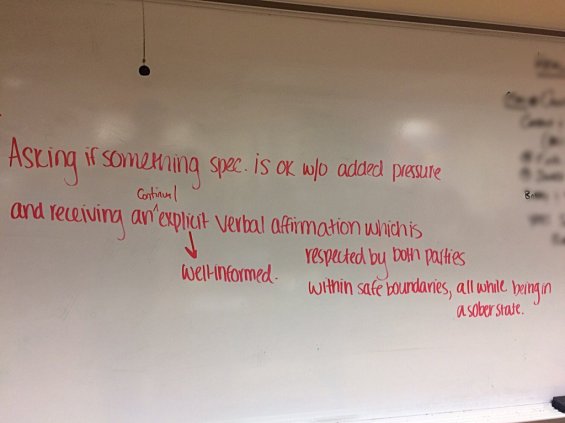 Asking if something spec. is ok w/o added pressure
continual
and receiving an ^ explicit verbal affirmation which is
well-informed.
respected by both parties
within safe boundaries, all while being in
a sober state.